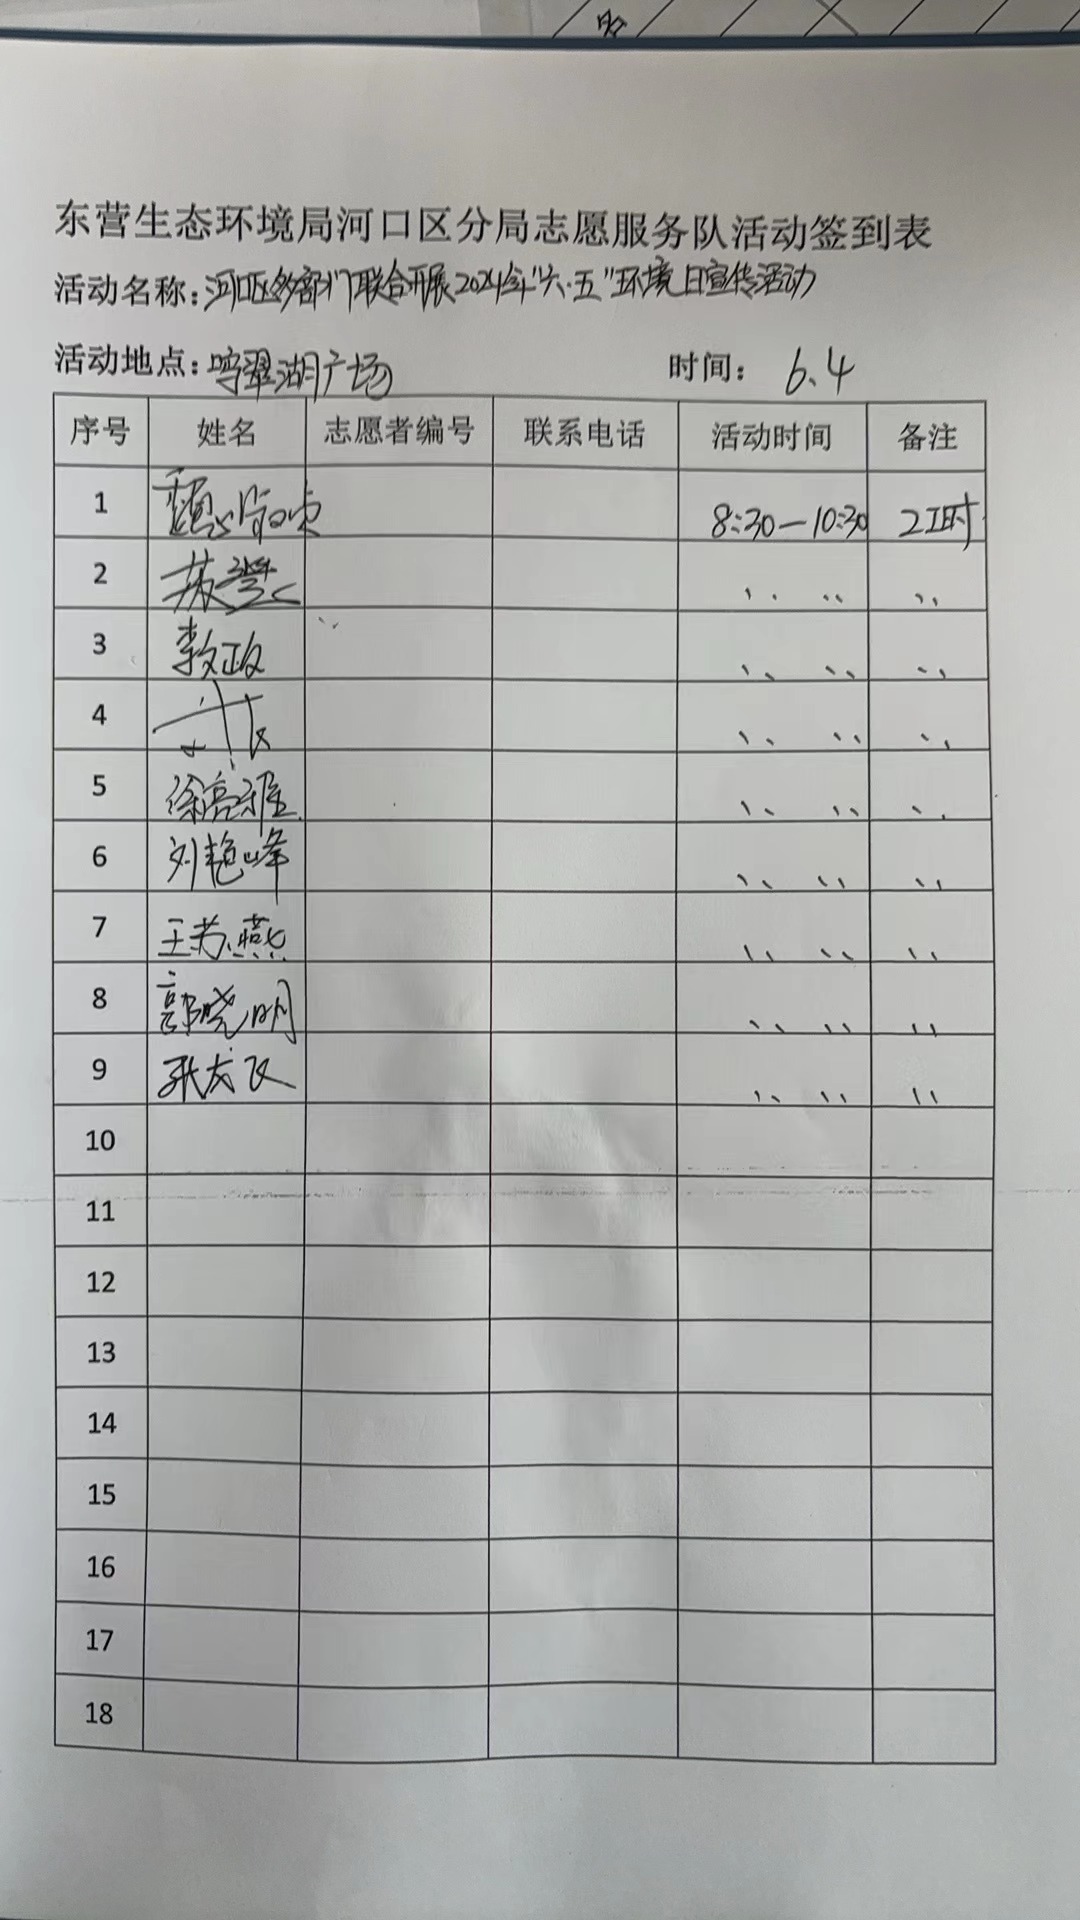 东营生态环境局河口区分局志愿服务队活动签到表
活动名称：河口区多部门联合开展2024年"六·五"环境日宣传活动
活动地点：鸣翠湖广场 时间： 6.4
序号 姓名 志愿者编号 联系电话 活动时间 备注
1 8:30—10:30 2工时
2 苏莹 〃 〃 〃
3 李政 〃 〃 〃
4 〃 〃 〃
5 徐亮 〃 〃 〃
6 刘艳峰 〃 〃 〃
7 王苏燕 〃 〃 〃
8 郭晓明 〃 〃 〃
9 张龙飞 〃 〃 〃
10
11
12
13
14
15
16
17
18